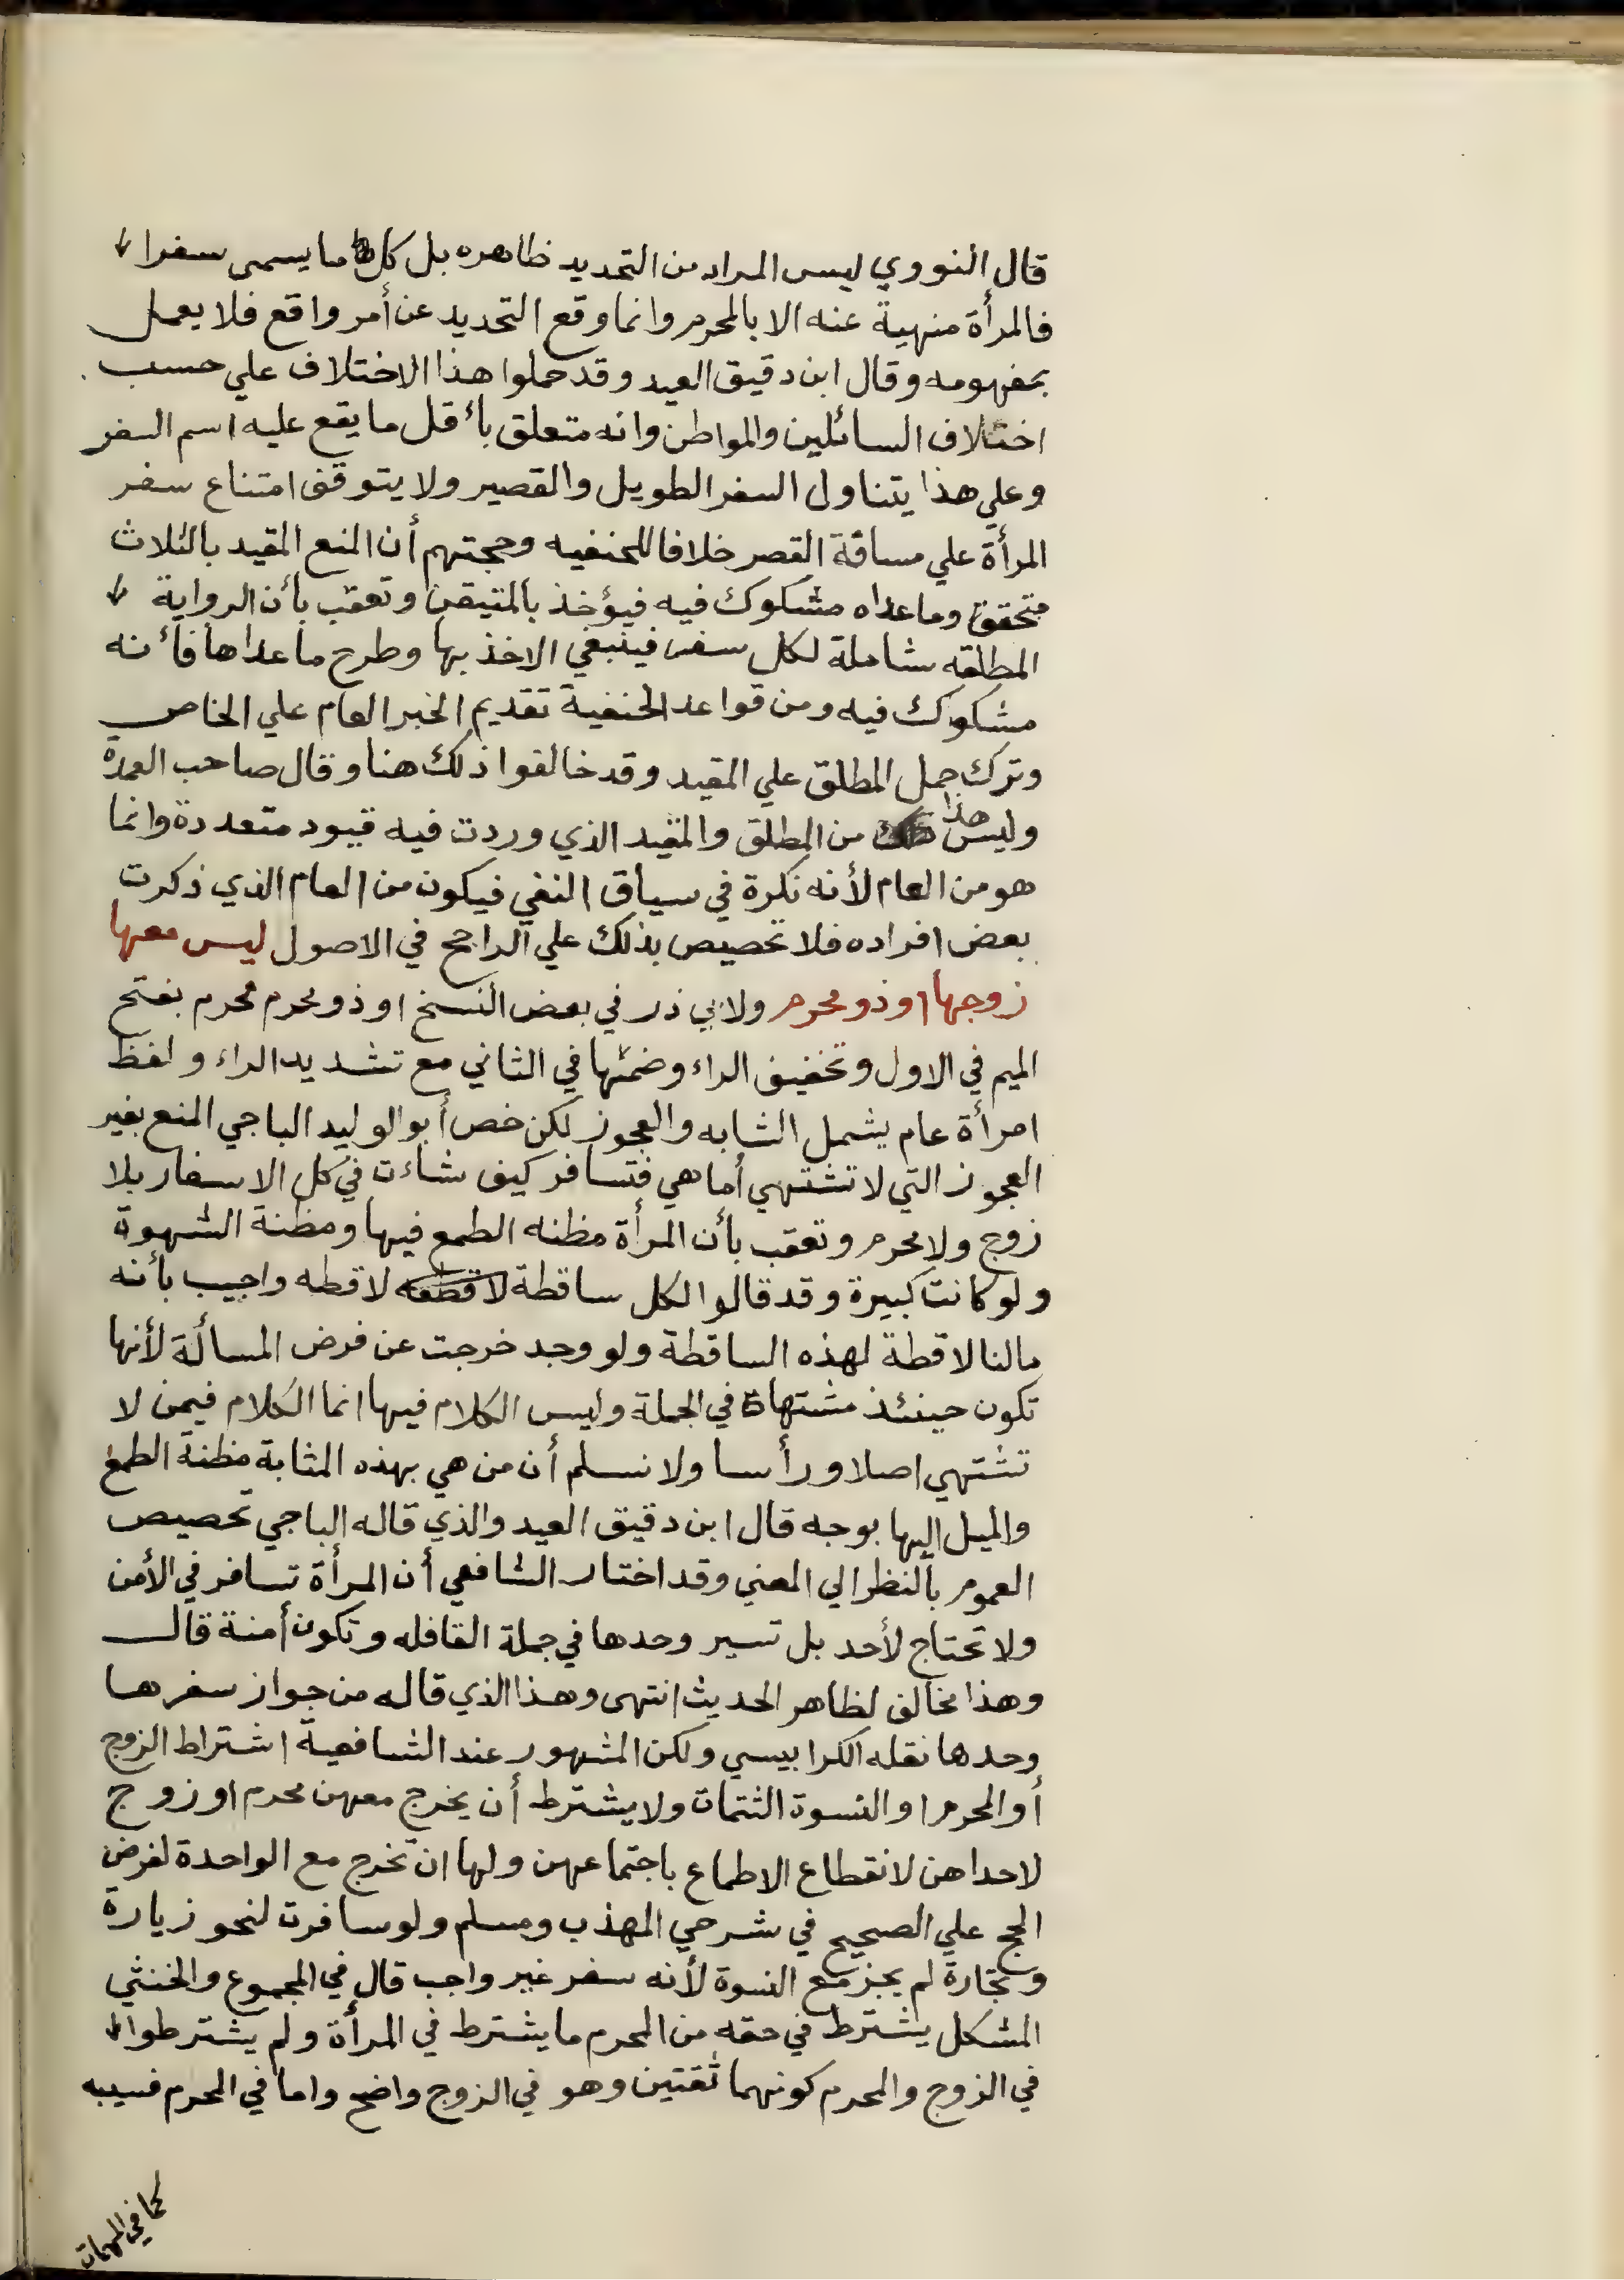 قال النووي ليس المراد من التحديد ظاهره بل كل ما يسمى سفرا
فالمرأة منهية عنه الا بالمحرم وانما وقع التحديد عن أمر واقع فلا يعمل
بمفهومه وقال ابن دقيق العيد وقد حملوا هذا الاختلاف علي حسب
اختلاف السائلين والمواطن وانه متعلق بأقل ما يقع عليه اسم السفر
وعلي هذا يتناول السفر الطويل والقصير ولا يتوقف امتناع سفر
المرأة علي مسافة القصر خلافا للحنفيه وحجتهم أن المنع المقيد بالثلاث
متحقق وما عداه مشكوك فيه فيؤخذ بالمتيقن وتعقب بأن الرواية
المطلقه شاملة لكل سفر فينبغي الاخذ بها وطرح ما عداها فأنه
مشكوك فيه ومن قواعد الحنفية تقديم الخبر العام علي الخاص
وترك حمل المطلق علي المقيد وقد خالفوا ذلك هنا وقال صاحب العمدة
وليس هذا من المطلق والمقيد الذي وردت فيه قيود متعددة وانما
هو من العام لأنه نكرة في سياق النفي فيكون من العام الذي ذكرت
بعض افراده فلا تخصيص بذلك علي الراجح في الاصول ليس معها
زوجها او ذو محرم ولابي ذر في بعض النسخ او ذو محرم محرم بفتح
الميم في الاول وتخفيف الراء وضمها في الثاني مع تشديد الراء ولفظ
امرأة عام يشمل الشابه والعجوز لكن خص أبو الوليد الباجي المنع بغير
العجوز التي لا تشتهي أما هي فتسافر كيف شاءت في كل الاسفار بلا
زوج ولا محرم وتعقب بأن المرأة مظنه الطمع فيها ومظنة الشهوة
ولو كانت كبيرة وقد قالوا لكل ساقطة لاقطه واجيب بأنه
مالنا لاقطة لهذه الساقطة ولو وجد خرجت عن فرض المسألة لأنها
تكون حينئذ مشتهاة في الجملة وليس الكلام فيها انما الكلام فيمن لا
تشتهي اصلا ورأسا ولا نسلم أن من هي بهذه المثابة مظنة الطمع
والميل اليها بوجه قال ابن دقيق العيد والذي قاله الباجي تخصيص
العموم بالنظر الي المعني وقد اختار الشافعي أن المرأة تسافر في الأمن
ولا تحتاج لأحد بل تسير وحدها في جملة القافله وتكون أمنة قال
وهذا مخالف لظاهر الحديث انتهى وهذا الذي قاله من جواز سفرها
وحدها نقله الكرابيسي ولكن المشهور عند الشافعية اشتراط الزوج
أو المحرم او النسوة الثقات ولا يشترط أن يخرج معهن محرم او زوج
لاحداهن لانقطاع الاطماع باجتماعهن ولها ان تخرج مع الواحدة لفرض
الحج علي الصحيح في شرحي المهذب ومسلم ولو سافرت لنحو زيارة
وتجارة لم يجز مع النسوة لأنه سفر غير واجب قال في المجموع والخنثي
المشكل يشترط في حقه من المحرم ما يشترط في المرأة ولم يشترطوا
في الزوج والمحرم كونهما ثقتين وهو في الزوج واضح واما في المحرم فسببه
كما في المهمات